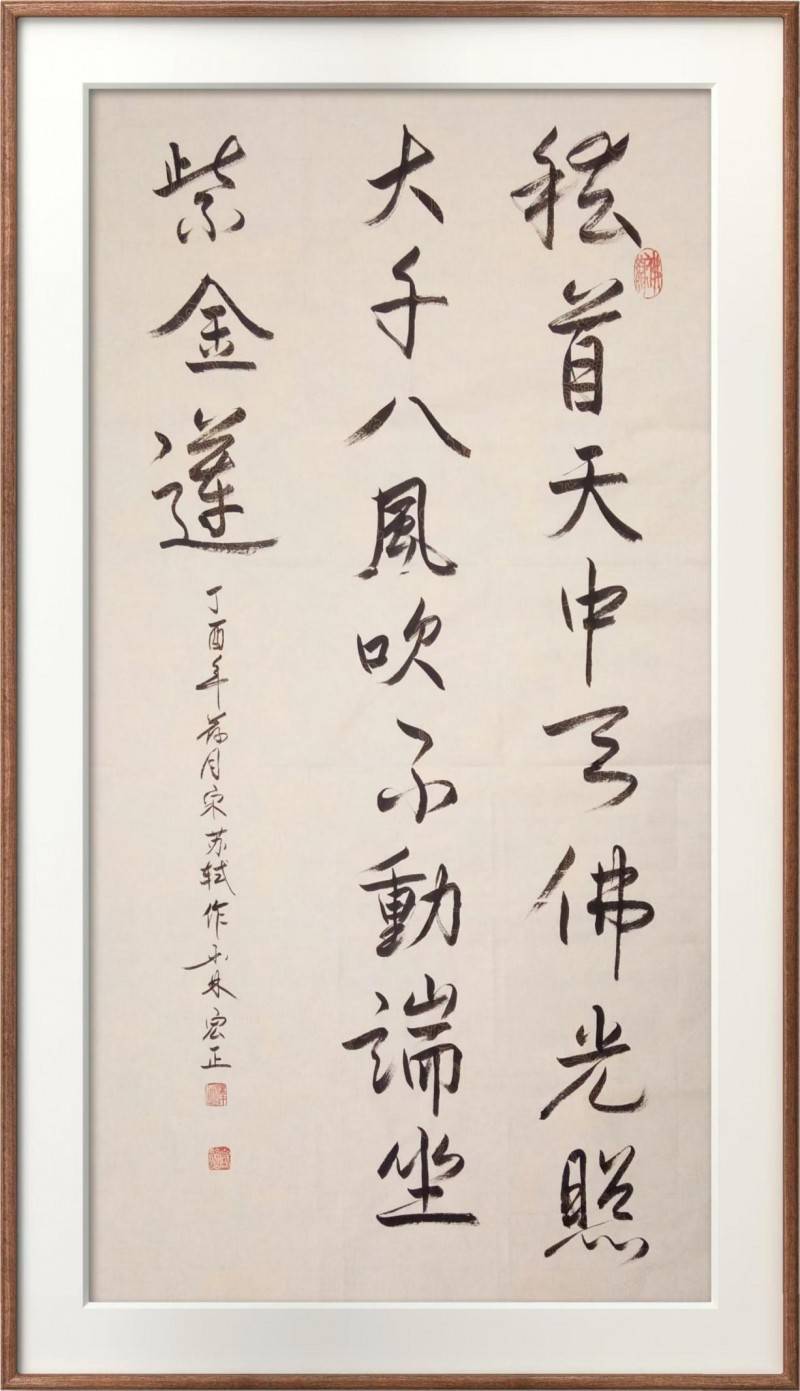 稽首天中天佛光照
大千八風吹不動端坐
紫金蓮
丁酉年月宋苏轼作林宏正